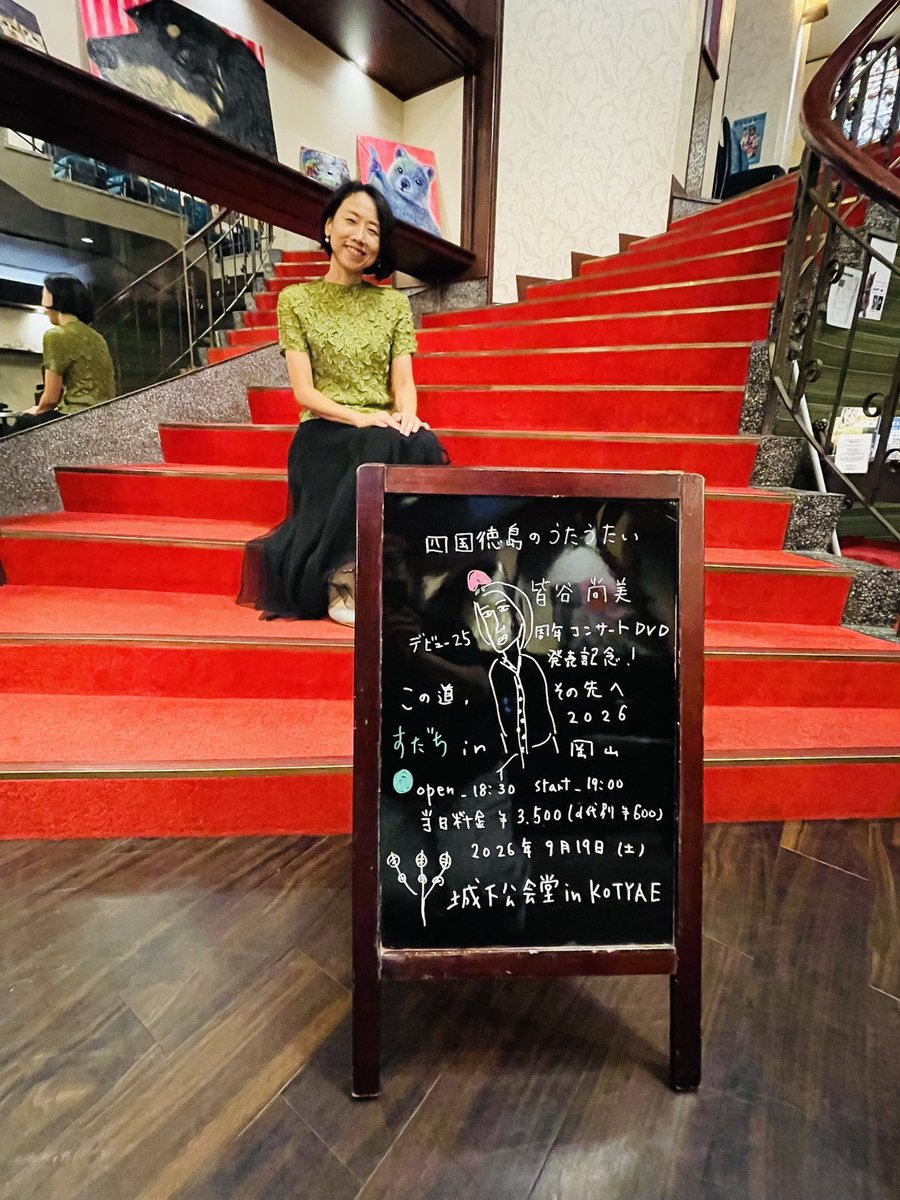 四国徳島のうたうたい
皆谷尚美
デビュー25周年コンサートDVD
発売記念!
この道,その先へ
2026
すだち in 岡山
open_18:30 start_19:00
当日料金 ¥3.500(d代別¥600)
2026年9月19日(土)
城下公会堂 in KOTYAE